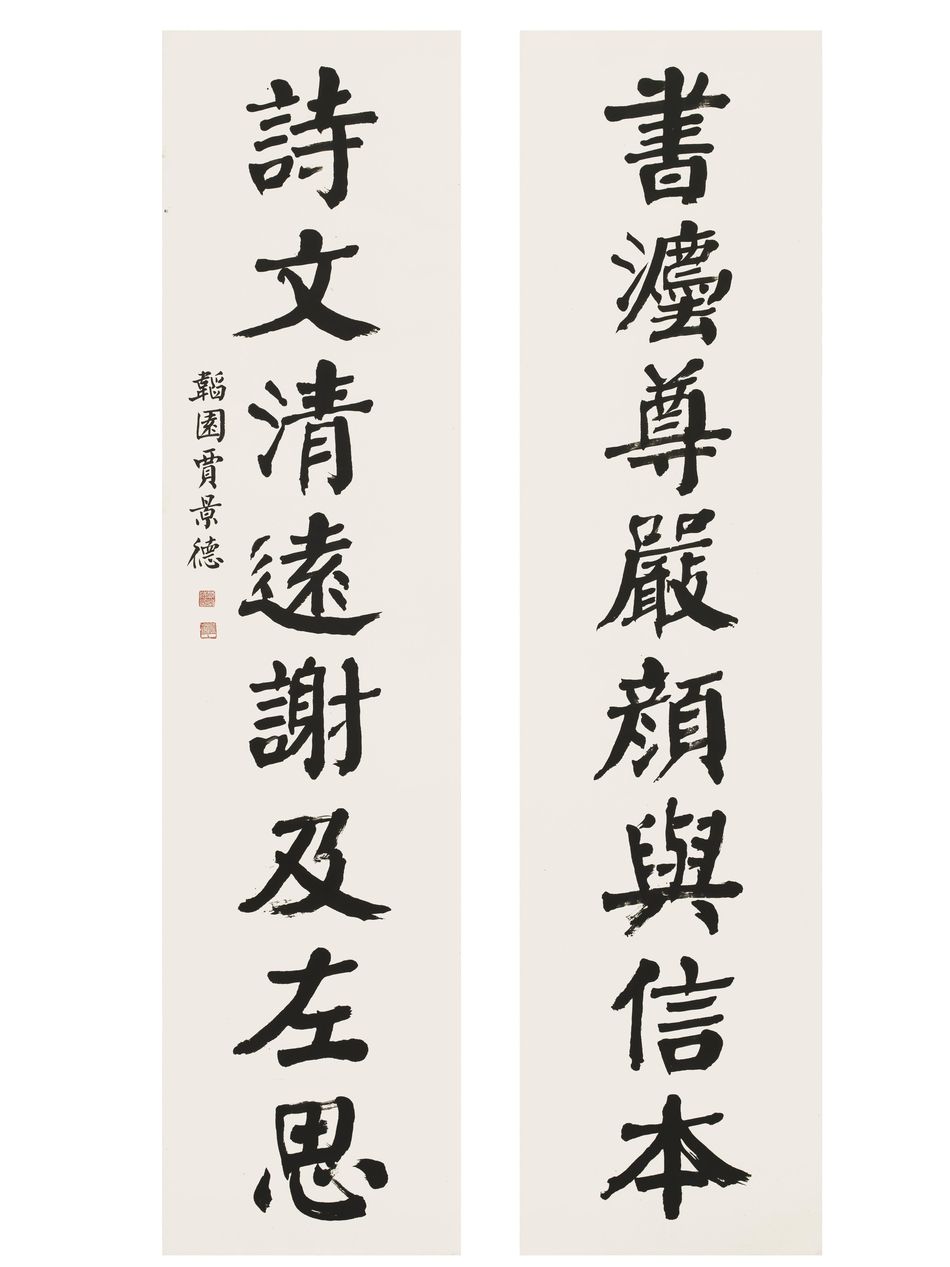 書灋尊嚴顏與信本
詩文清遠謝及左思
韜園賈景德